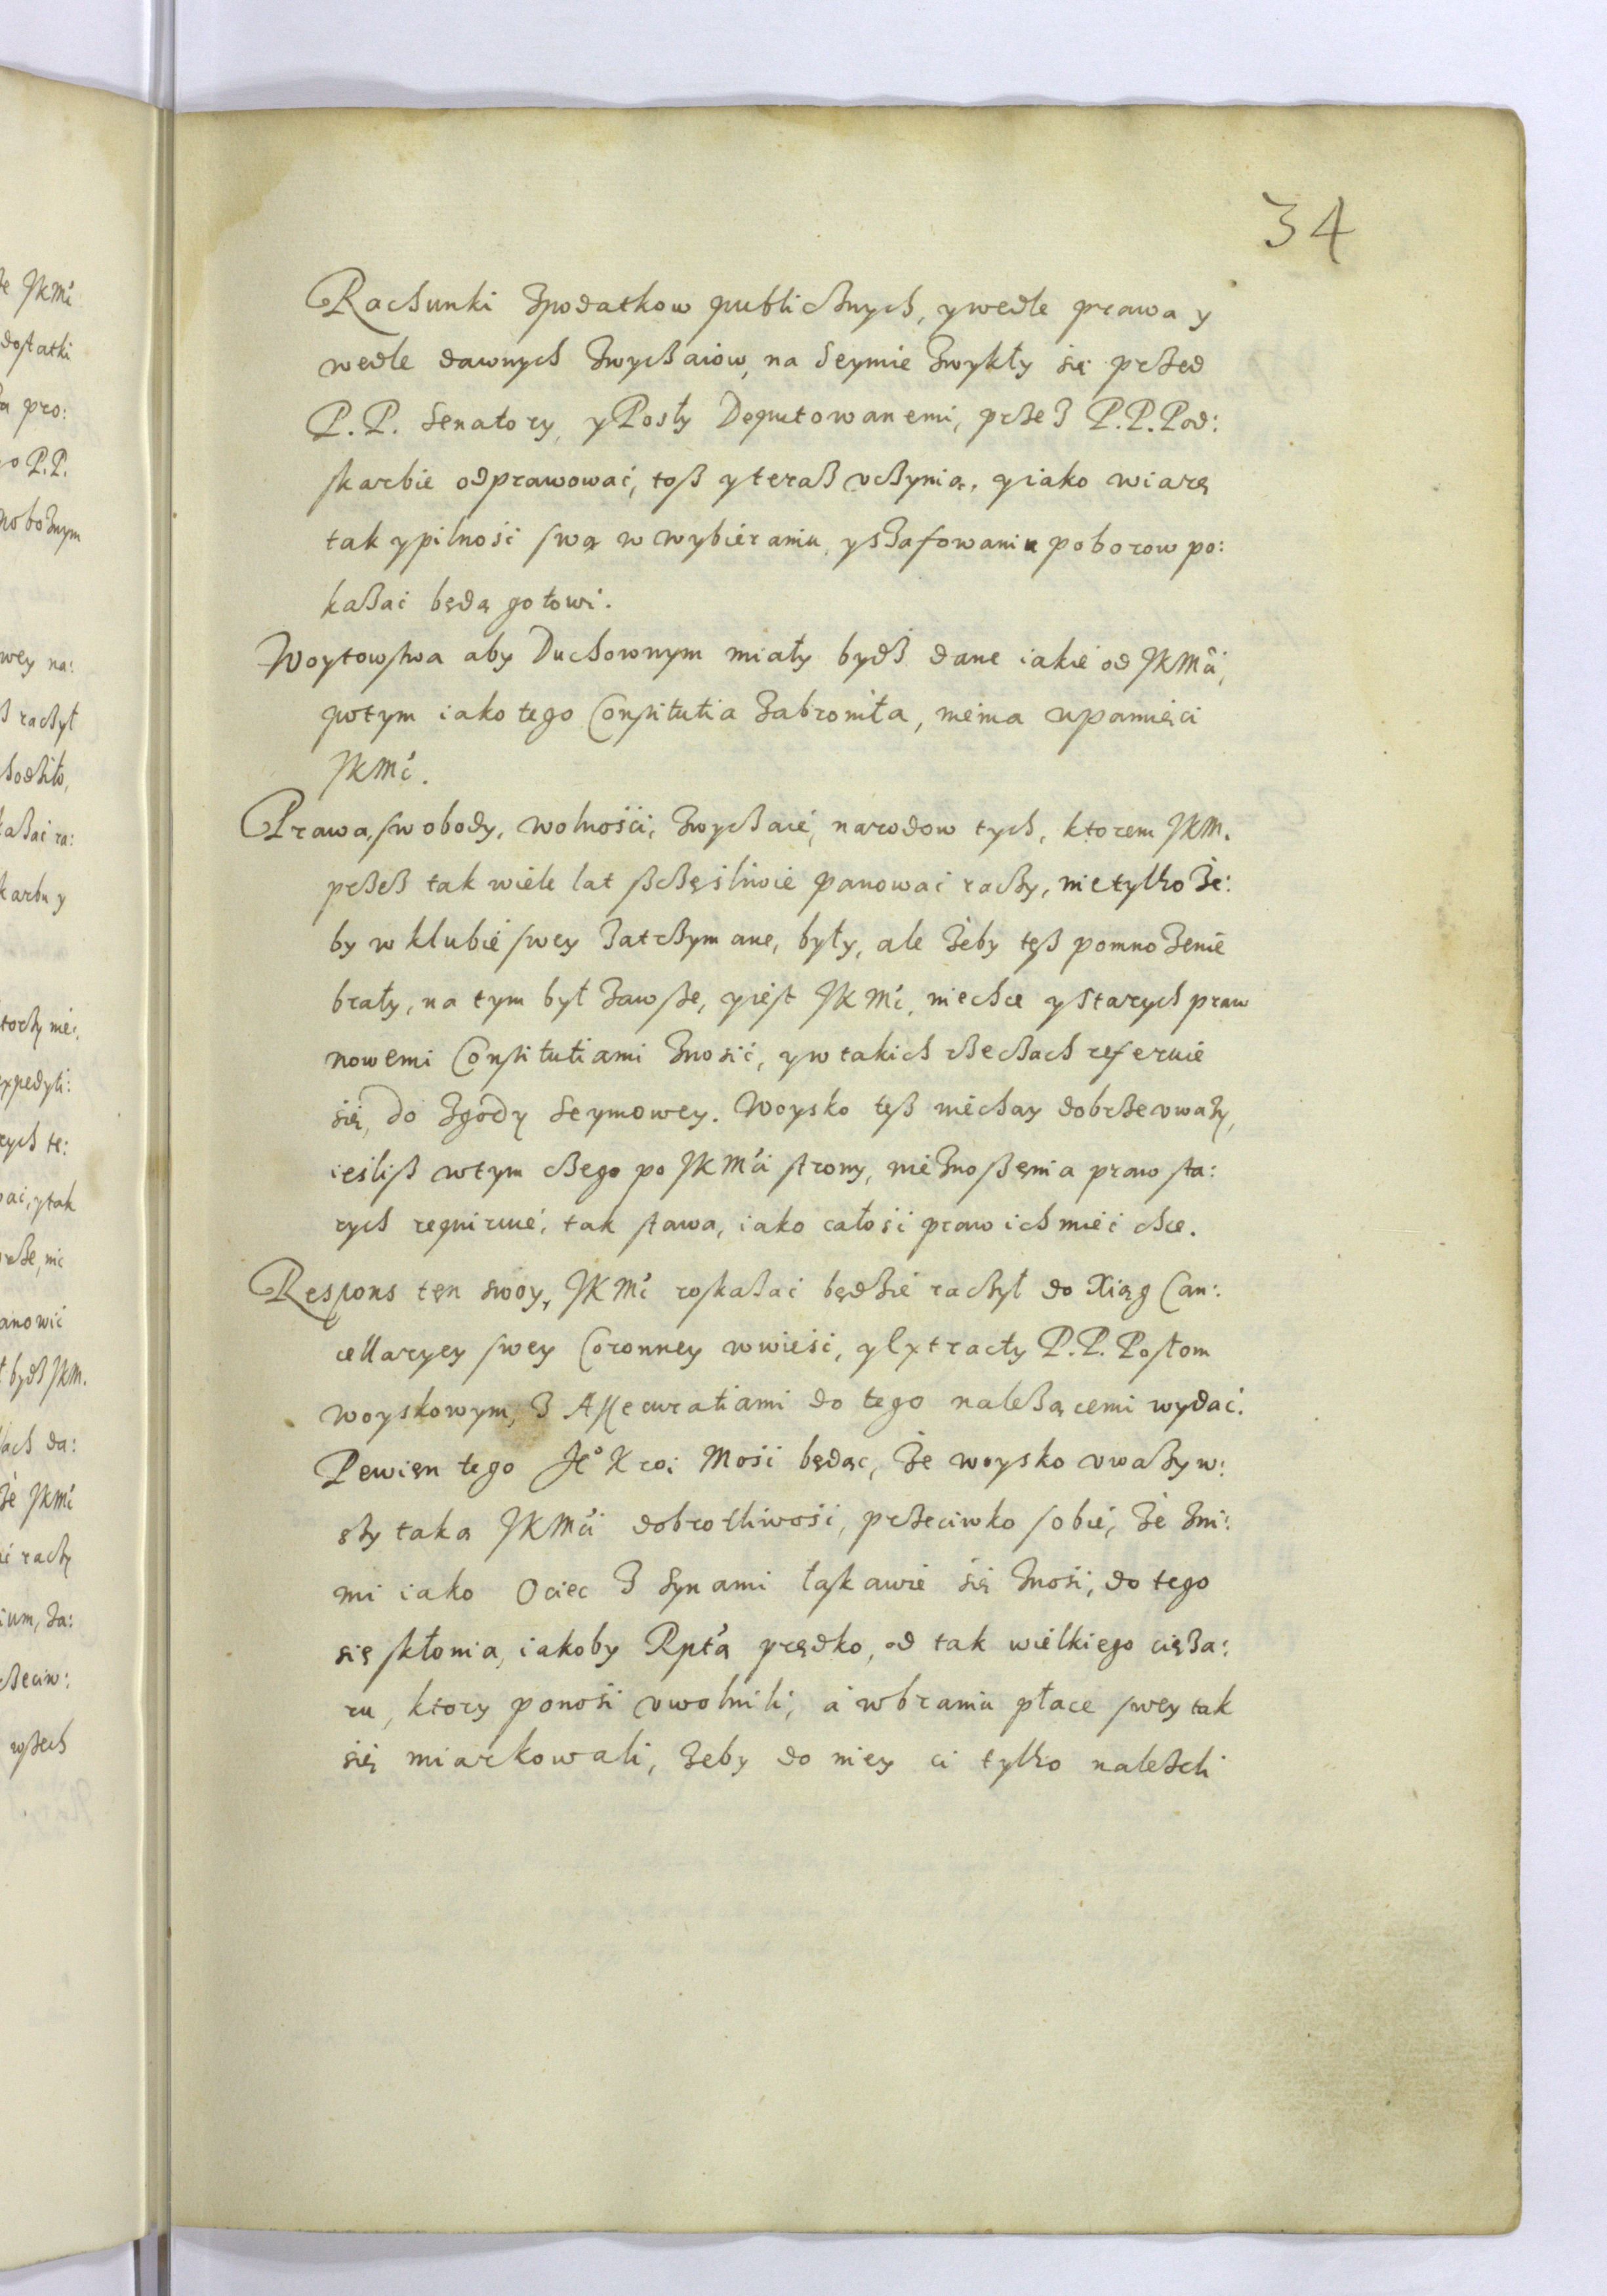 34
Rachunki zpodatkow publicznych, y wedle prawa y
wedle dawnych zwyczaiow, na Seymie zwykły się przed
P.P. Senatory, y Posły Deputowanemi, przez P.P. Pod:
skarbie odprawować, toß y teraß vczynią, y iako wiarę
tak y pilność swą w wybieraniu, y szafowaniu poborow po:
kazać będą gotowi.
Woytowstwa aby Duchownym miały bydź dane iakie od JKMći,
potym iako tego Constitutia zabroniła, niema wpamięci
JKMć.
Prawa, swobody, wolności, zwyczaie, narodow tych, ktorem JKM.
przeß tak wiele lat ßczęśliwie panować raczy, nietylko że:
by w klubie swey zatrzymane, były, ale żeby też pomnożenie
brały, na tym był zawsze, y iest JKMć, niechce y starych praw
nowemi Constitutiami znosić, y w takich rzeczach referuie
się, do zgody Seymowey. Woysko teß niechay dobrze vważy,
ieśliß wtym czego po JKMći strony, nieznoßenia praw sta:
rych requiruie, tak stawa, iako całości praw ich mieć chce.
Respons ten swoy, JKMć roskazać będzie raczył do Xiąg Can:
cellaryey swey Coronney wwieść, y Extracty P.P. Posłom
woyskowym, z Assecuratiami do tego należącemi wydać.
Pewien tego Jeº Kroł Mość będąc, że woysko vważyw:
szy taką JKMći dobrotliwość, przeciwko sobie, że zni:
mi iako Ociec z Synami łaskawie się znosi, do tego
się skłonia, iakoby Rpta prędko, od tak wielkiego cięża:
ru, ktory ponosi vwolnili, a wbraniu płace swey tak
się miarkowali, żeby do niey ci tylko należeli
że JKMć
dostatki
pro:
P.P.
nobożnym
wey na:
raczył
kazać ra:
karbu y
expedyti:
rych te:
y tak
anowić
bydź JKM.
że JKMć
raczy
ium, za:
rzeciw:
wßech